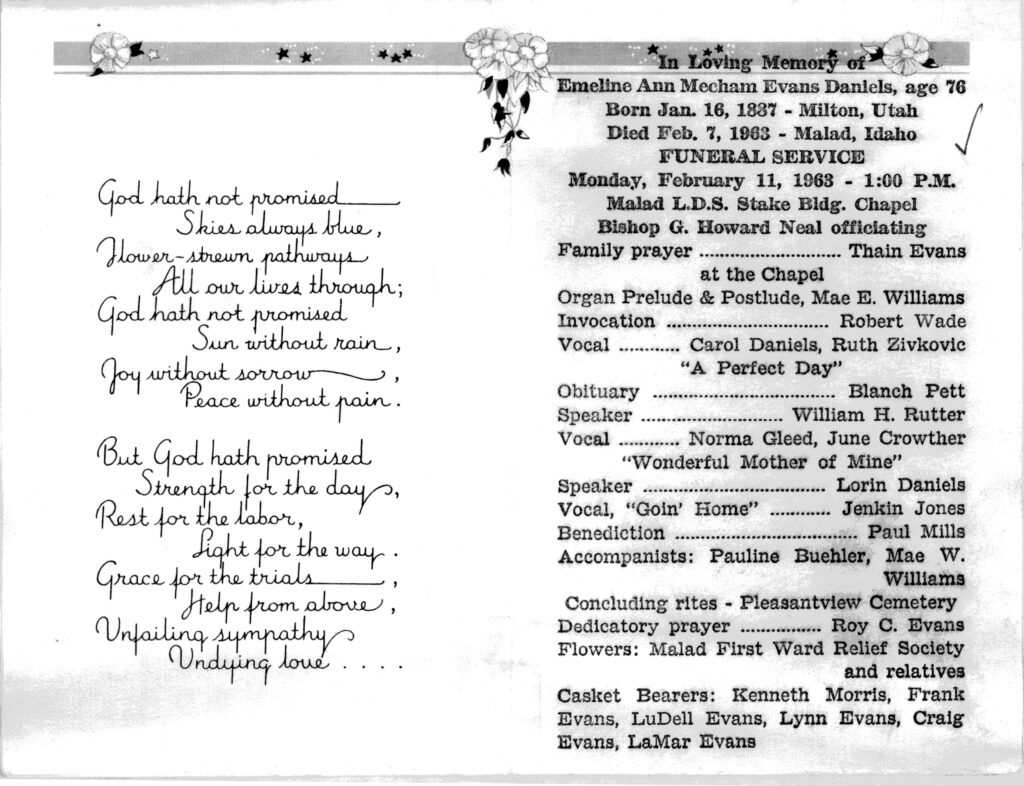 God hath not promised
Skies always blue,
Flower-strewn pathways
All our lives through;
God hath not promised
Sun without rain,
Joy without sorrow,
Peace without pain.
But God hath promised
Strength for the day,
Rest for the labor,
Light for the way.
Grace for the trials,
Help from above,
Unfailing sympathy
Undying love . . . .
In Loving Memory of
Emeline Ann Mecham Evans Daniels, age 76
Born Jan. 16, 1887 - Milton, Utah
Died Feb. 7, 1963 - Malad, Idaho
FUNERAL SERVICE
Monday, February 11, 1963 - 1:00 P.M.
Malad L.D.S. Stake Bldg. Chapel
Bishop G. Howard Neal officiating
Family prayer .............................. Thain Evans
at the Chapel
Organ Prelude & Postlude, Mae E. Williams
Invocation ................................ Robert Wade
Vocal ............ Carol Daniels, Ruth Zivkovic
"A Perfect Day"
Obituary .................................... Blanch Pett
Speaker ............................ William H. Rutter
Vocal ............ Norma Gleed, June Crowther
"Wonderful Mother of Mine"
Speaker .................................... Lorin Daniels
Vocal, "Goin' Home" ............ Jenkin Jones
Benediction .................................... Paul Mills
Accompanists: Pauline Buehler, Mae W.
Williams
Concluding rites - Pleasantview Cemetery
Dedicatory prayer ................ Roy C. Evans
Flowers: Malad First Ward Relief Society
and relatives
Casket Bearers: Kenneth Morris, Frank
Evans, LuDell Evans, Lynn Evans, Craig
Evans, LaMar Evans